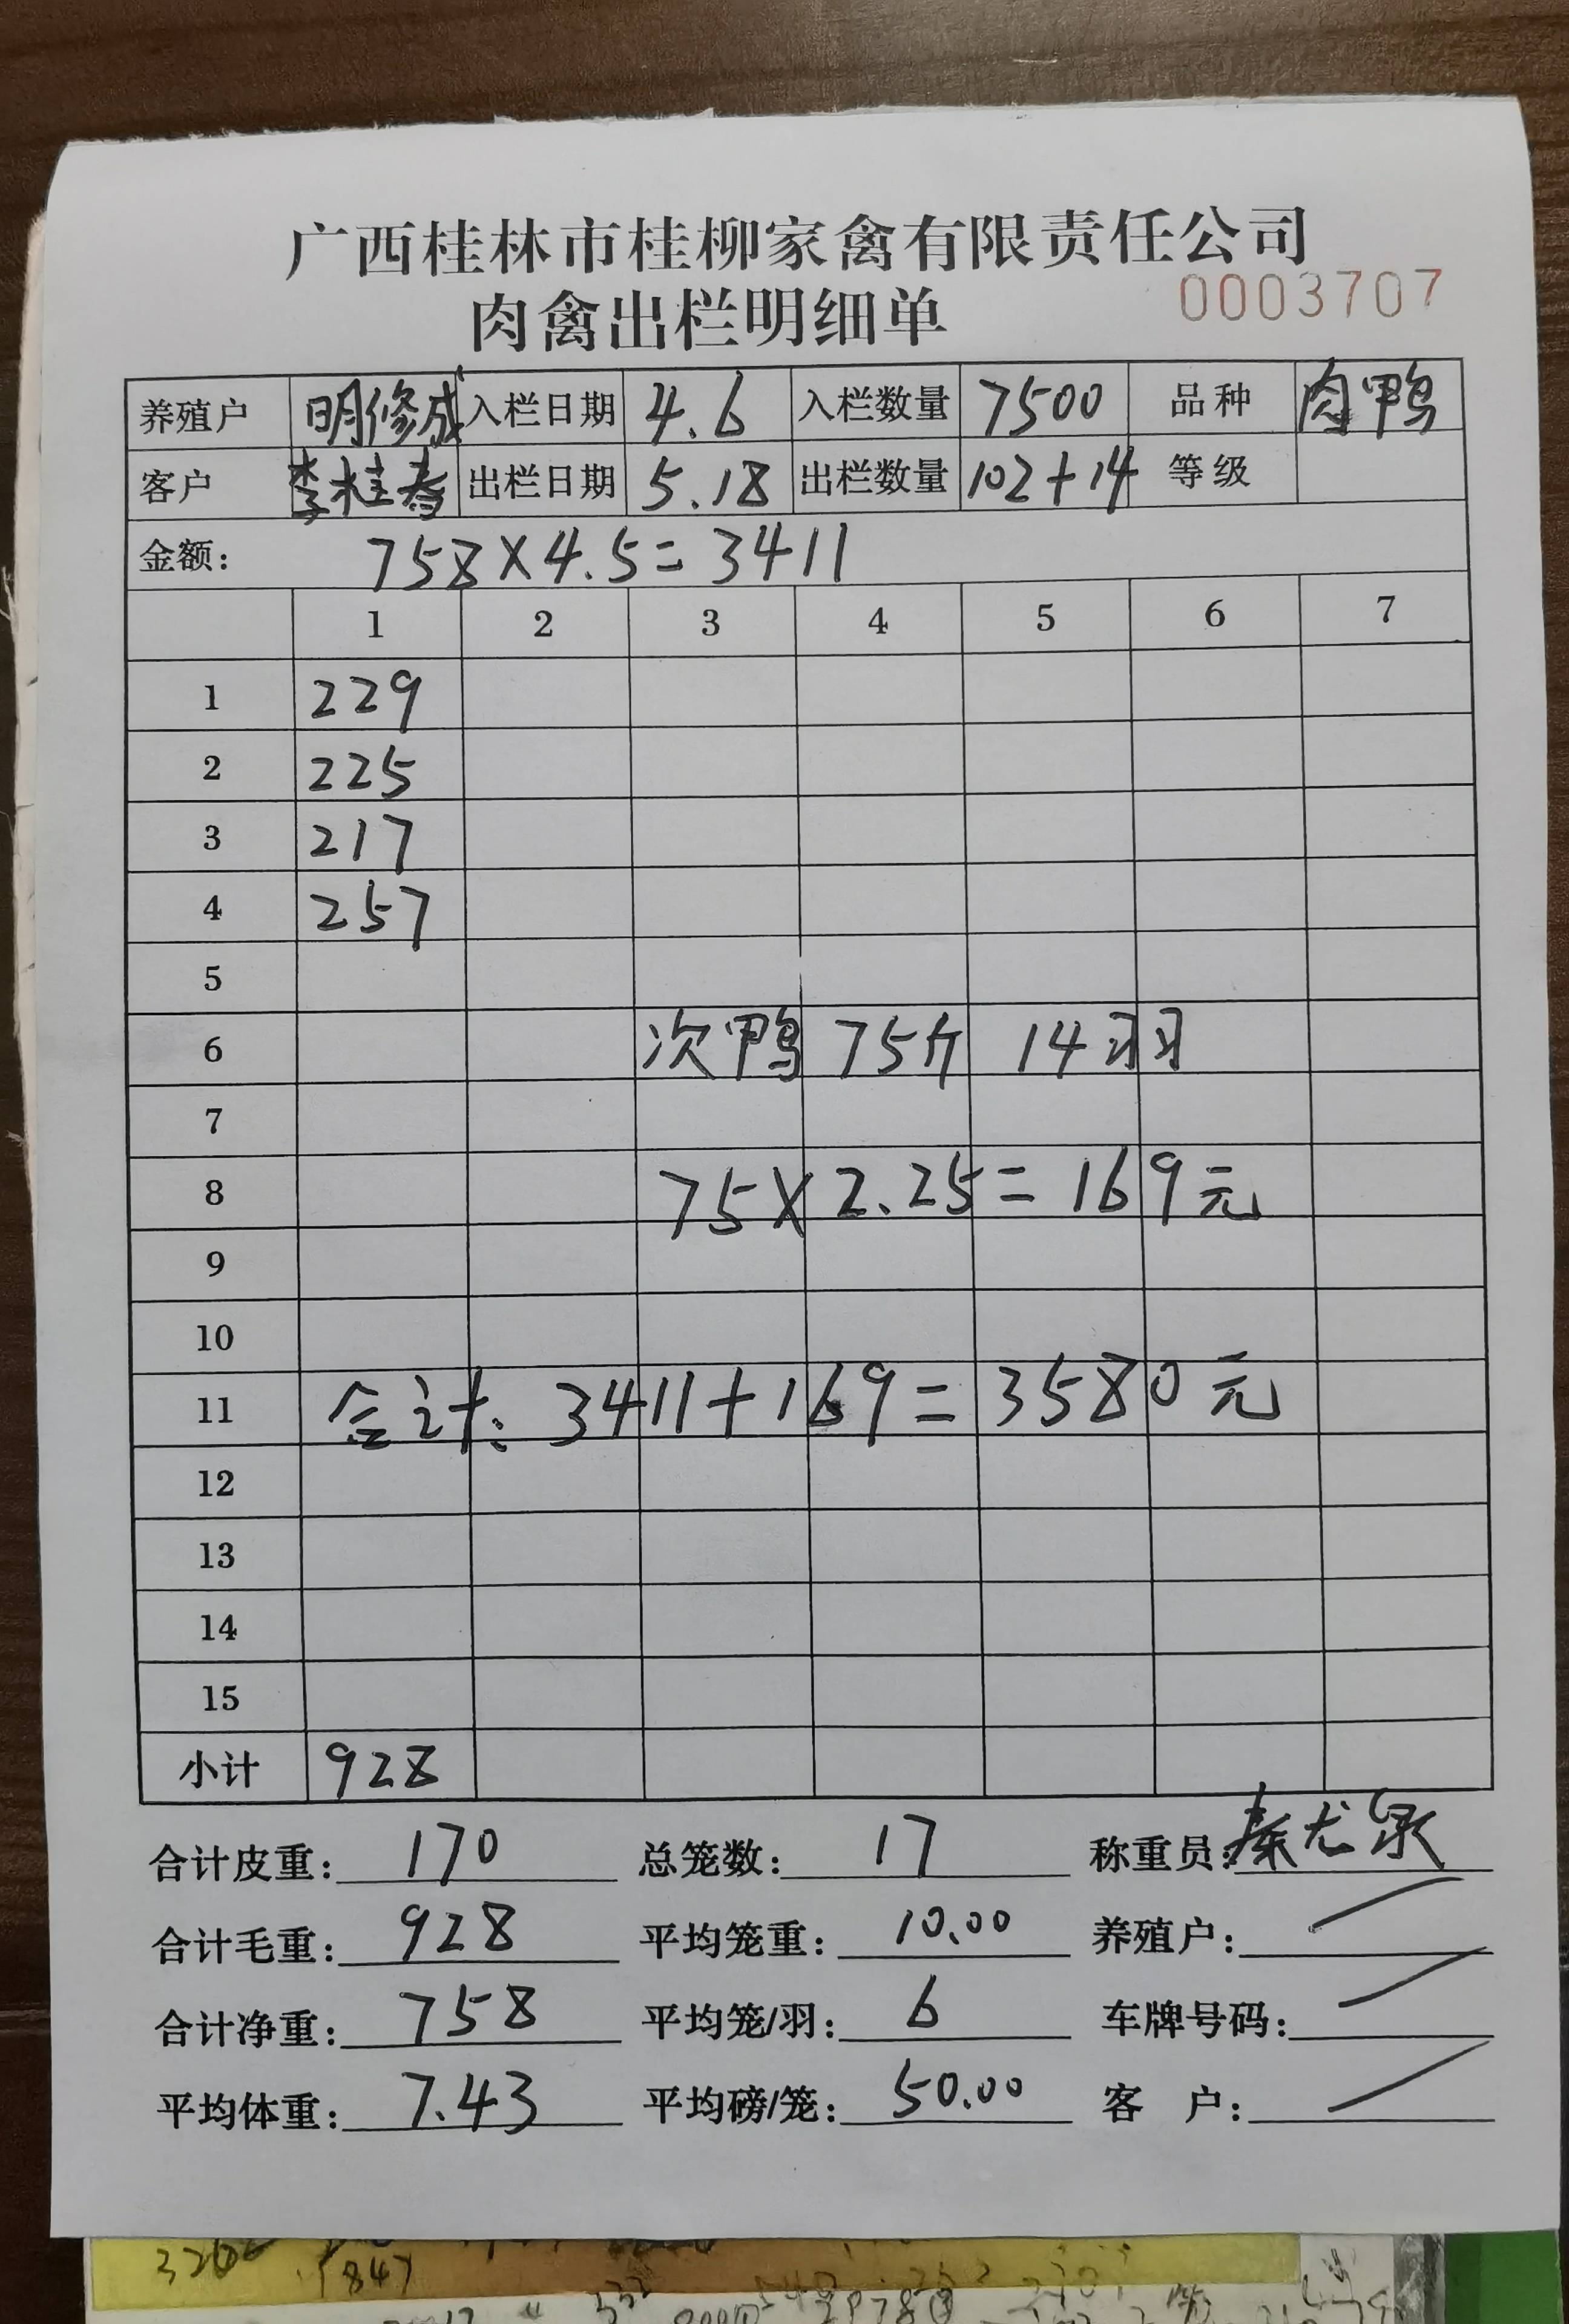 广西桂林市桂柳家禽有限责任公司
肉禽出栏明细单 0003707
养殖户 明修成 入栏日期 4.6 入栏数量 7500 品种 肉鸭
客户 李桂春 出栏日期 5.18 出栏数量 102+14 等级
金额: 758×4.5=3411
1 2 3 4 5 6 7
1 229
2 225
3 217
4 257
5
6 次鸭 75斤 14羽
7
8 75×2.25=169元
9
10
11 合计: 3411+169=3580元
12
13
14
15
小计 928
合计皮重: 170 总笼数: 17 称重员: 秦尤
合计毛重: 928 平均笼重: 10.00 养殖户:
合计净重: 758 平均笼/羽: 6 车牌号码:
平均体重: 7.43 平均磅/笼: 50.00 客户:
326 1847